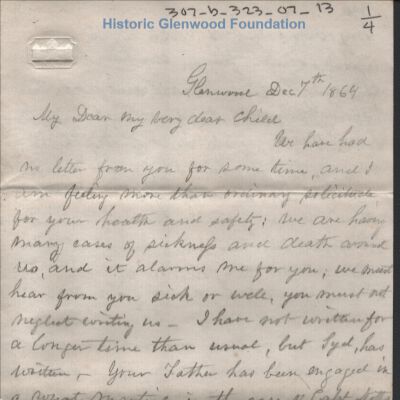 307-b-323-07-13
1/4
Historic Glenwood Foundation
Glenwood Dec 7th 1869
My Dear my very dear child
We have had
no letter from you for some time, and I
am feeling more than ordinary solicitude
for your health and safety; we are having
many cases of sickness and death around
us, and it alarms me for you; we must
hear from you sick or well, you must not
neglect writing us - I have not written for
a longer time than usual, but Syd, has
written - Your Father has been engaged in
a in the case of Capt